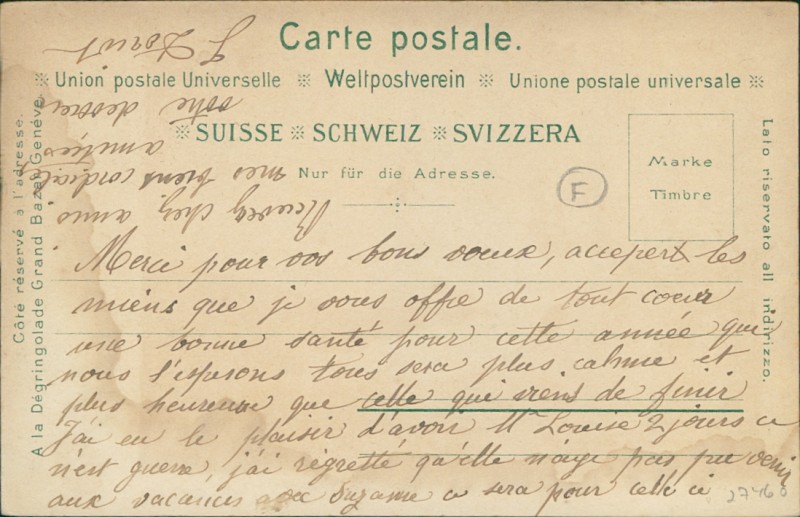 Carte postale.
Union postale Universelle Weltpostverein Unione postale universale
SUISSE SCHWEIZ SVIZZERA
Nur für die Adresse.
Marke
Timbre
F
Côté réservé à l'adresse.
A la Dégringolade Grand Bazar Genève.
Lato riservato all indirizzo.
Merci pour vos bons voeux, accepert les
miens que je vous offre de tout coeur
une bonne santé pour cette année que
nous l'esperons tous sera plus calme et
plus heureuse que celle qui viens de finir
J'ai eu le plaisir d'avoir Mle Louise 2 jours ce
n'est guere, j'ai régretté qu'elle n'aye pas pu venir
aux vacances avec Suzanne ce sera pour celle ci
Recevez chez amis
mes biens cordiales
amitiées
votre
27460